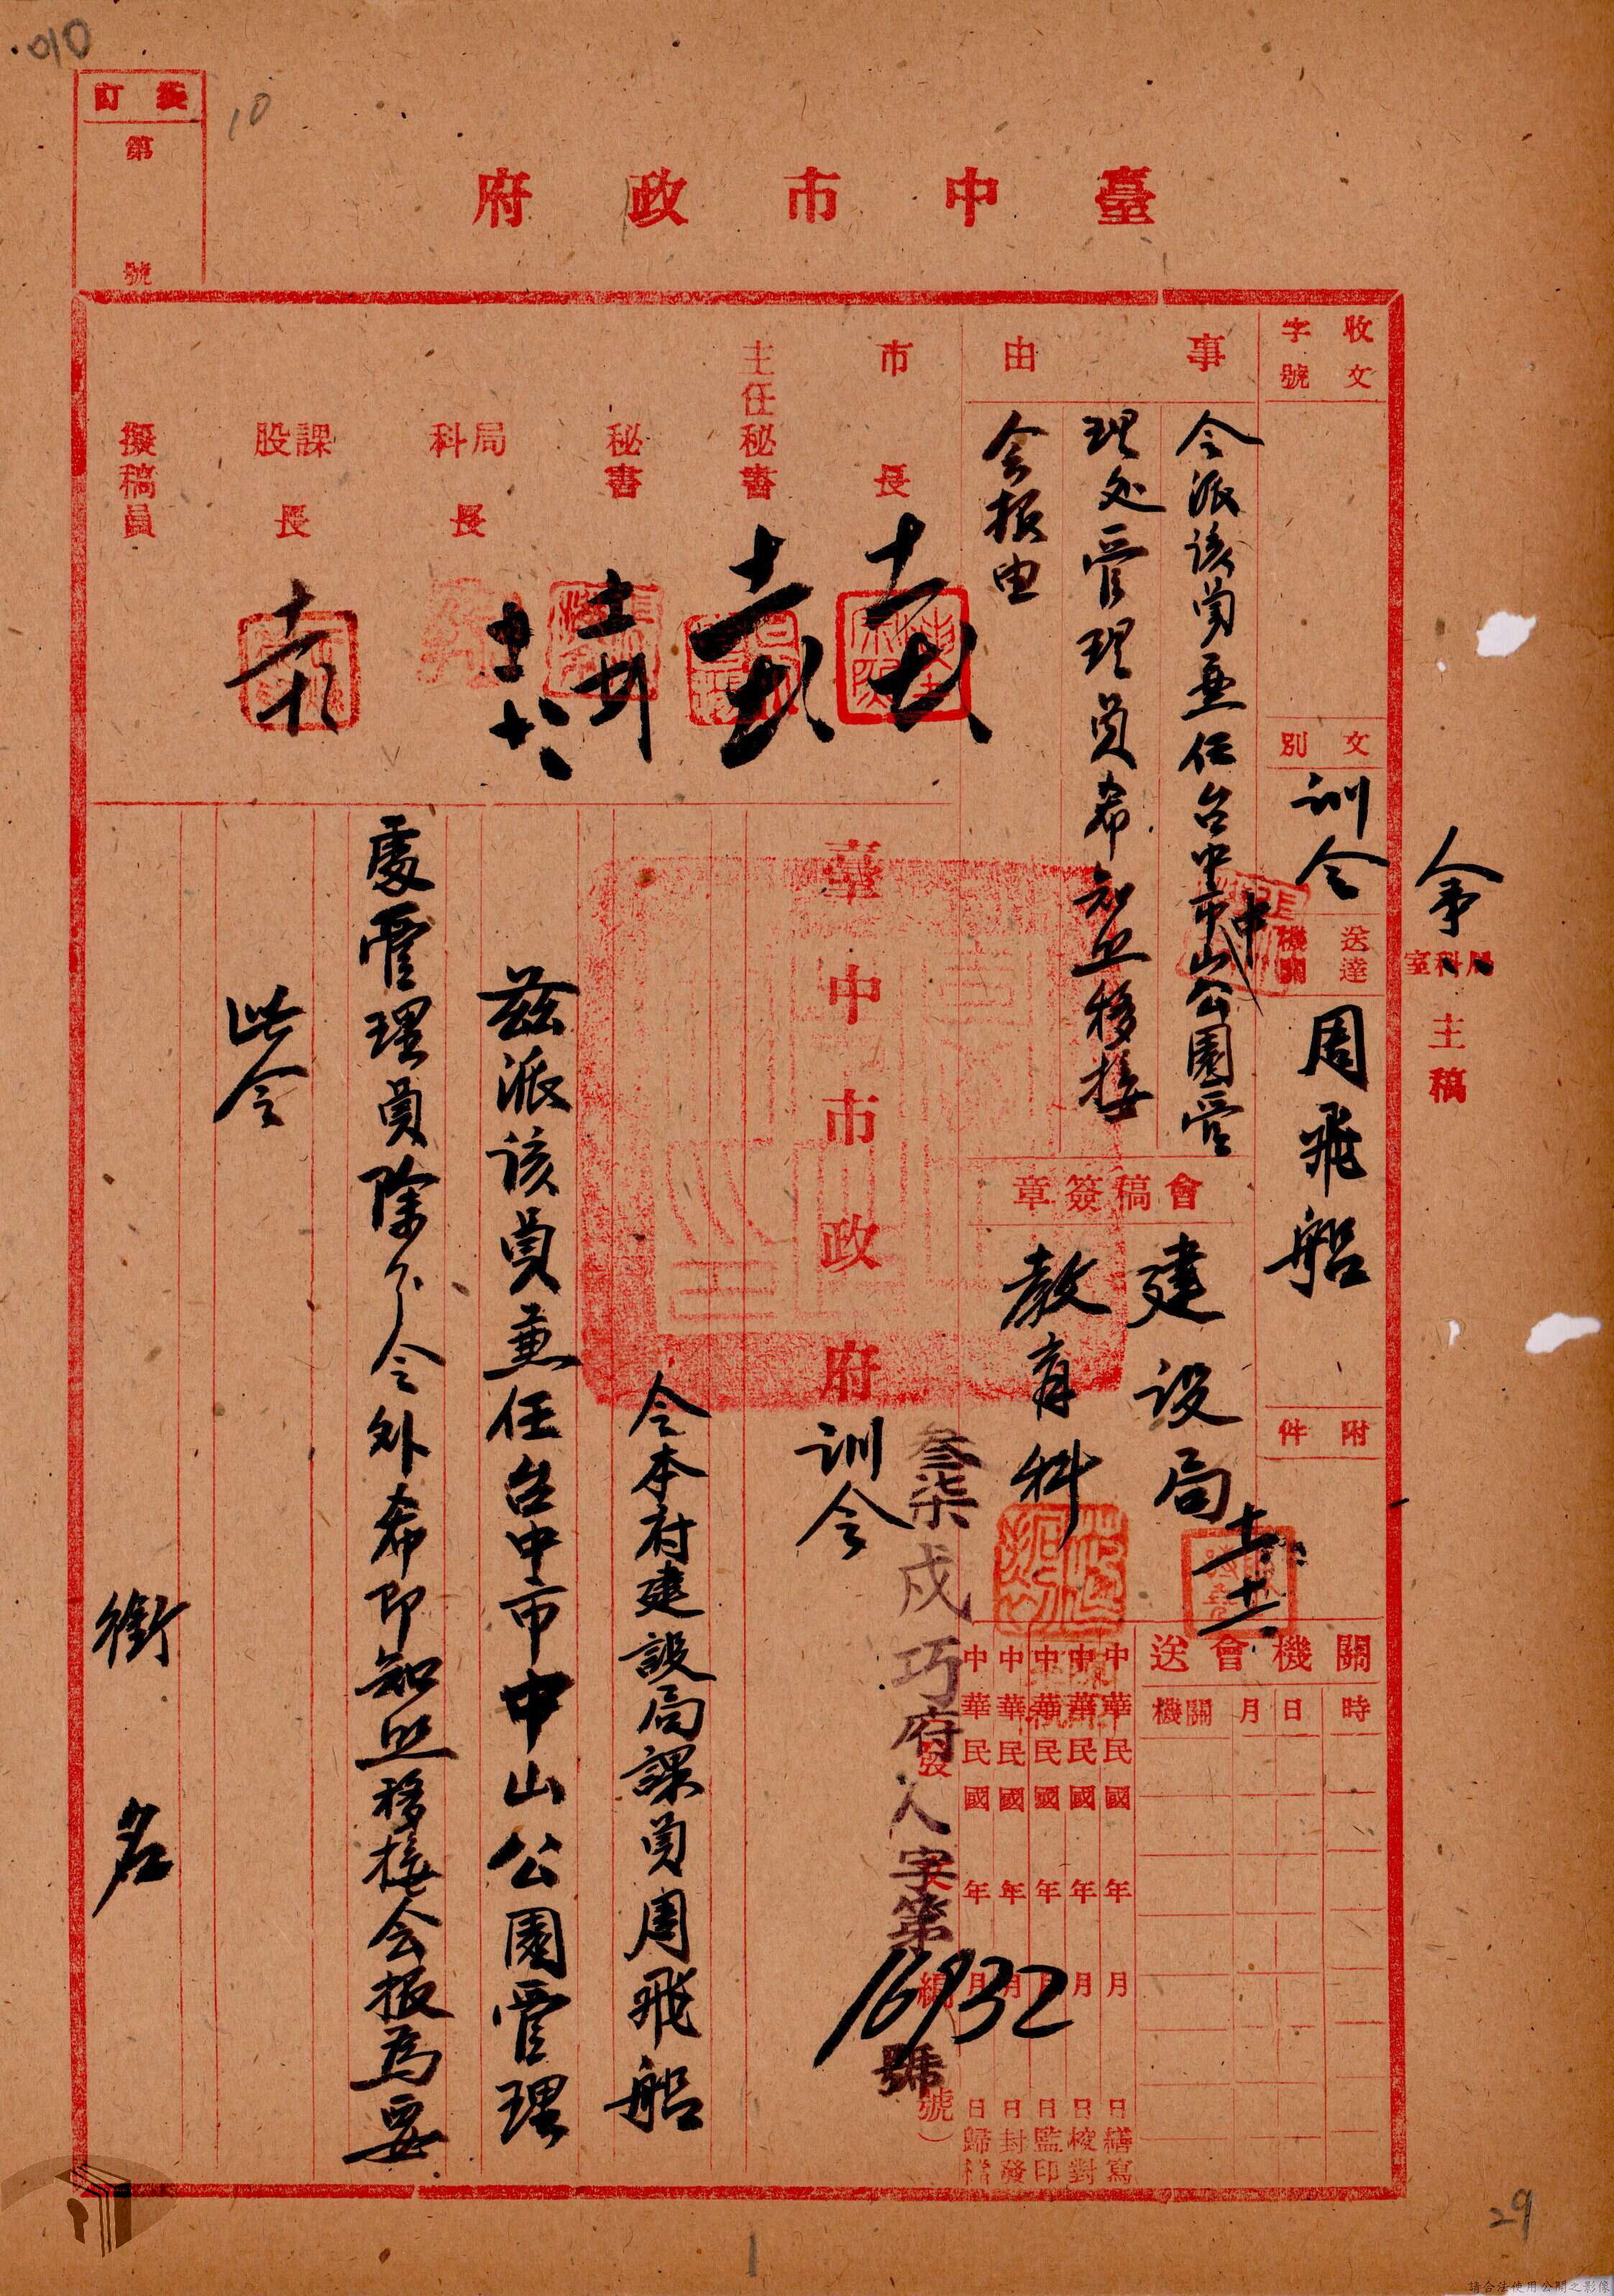 010
10
裝訂
第
號
臺中市政府
收文
字號
文別
訓令
送達機關
周飛船
附件
人事
局科室
主稿
事由
令派該員兼任台中市中山公園管
理处管理員希知照移接
会报由
會稿簽章
建設局
教育科
送會機關
機關 月日 時
市長
主任秘書
秘書
局科長
課股長
擬稿員
中華民國 年 月 日繕寫
中華民國 年 月 日校對
中華民國 年 月 日監印
中華民國 年 月 日封發
中華民國 年 月 日歸檔
叁柒戍巧府人字第16932號
臺中市政府訓令
令本府建設局課員周飛船
茲派該員兼任台中市中山公園管理
處管理員除分令外希即知照移接会报為要
此令
銜名
29
請合法使用公開之影像